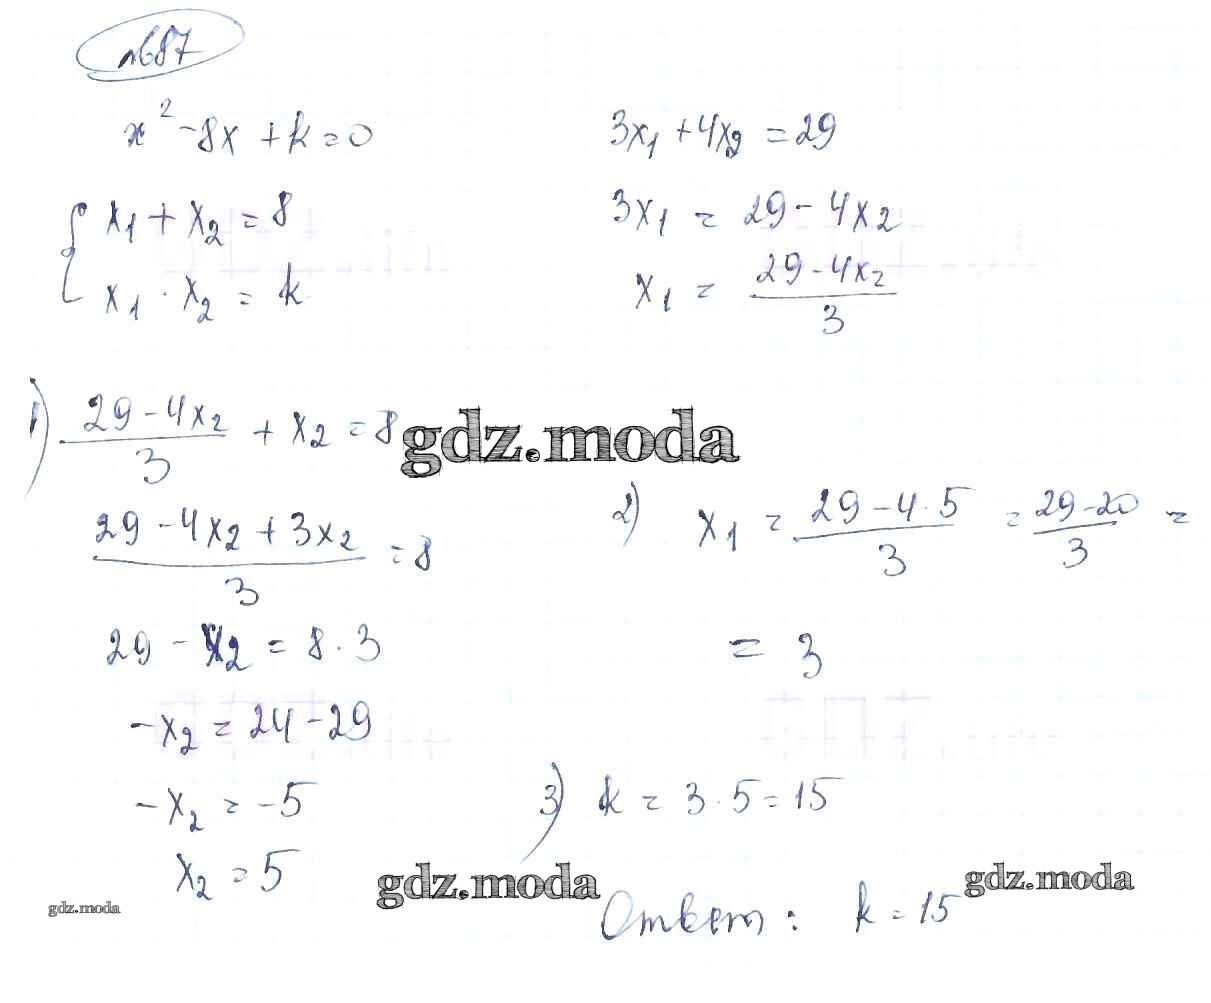 №687
x² - 8x + k = 0
{ x₁ + x₂ = 8
x₁ · x₂ = k
3x₁ + 4x₂ = 29
3x₁ = 29 - 4x₂
x₁ = (29 - 4x₂)/3
1) (29 - 4x₂)/3 + x₂ = 8
gdz.moda
(29 - 4x₂ + 3x₂)/3 = 8
29 - x₂ = 8 · 3
-x₂ = 24 - 29
-x₂ = -5
x₂ = 5
2) x₁ = (29 - 4 · 5)/3 = (29 - 20)/3 =
= 3
3) k = 3 · 5 = 15
gdz.moda
gdz.moda
gdz.moda
Ответ: k = 15